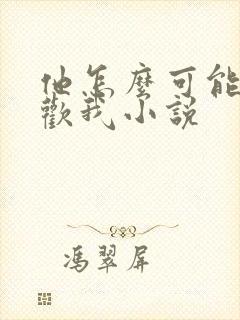 他怎麽可能
歡我小説
馮翠屏